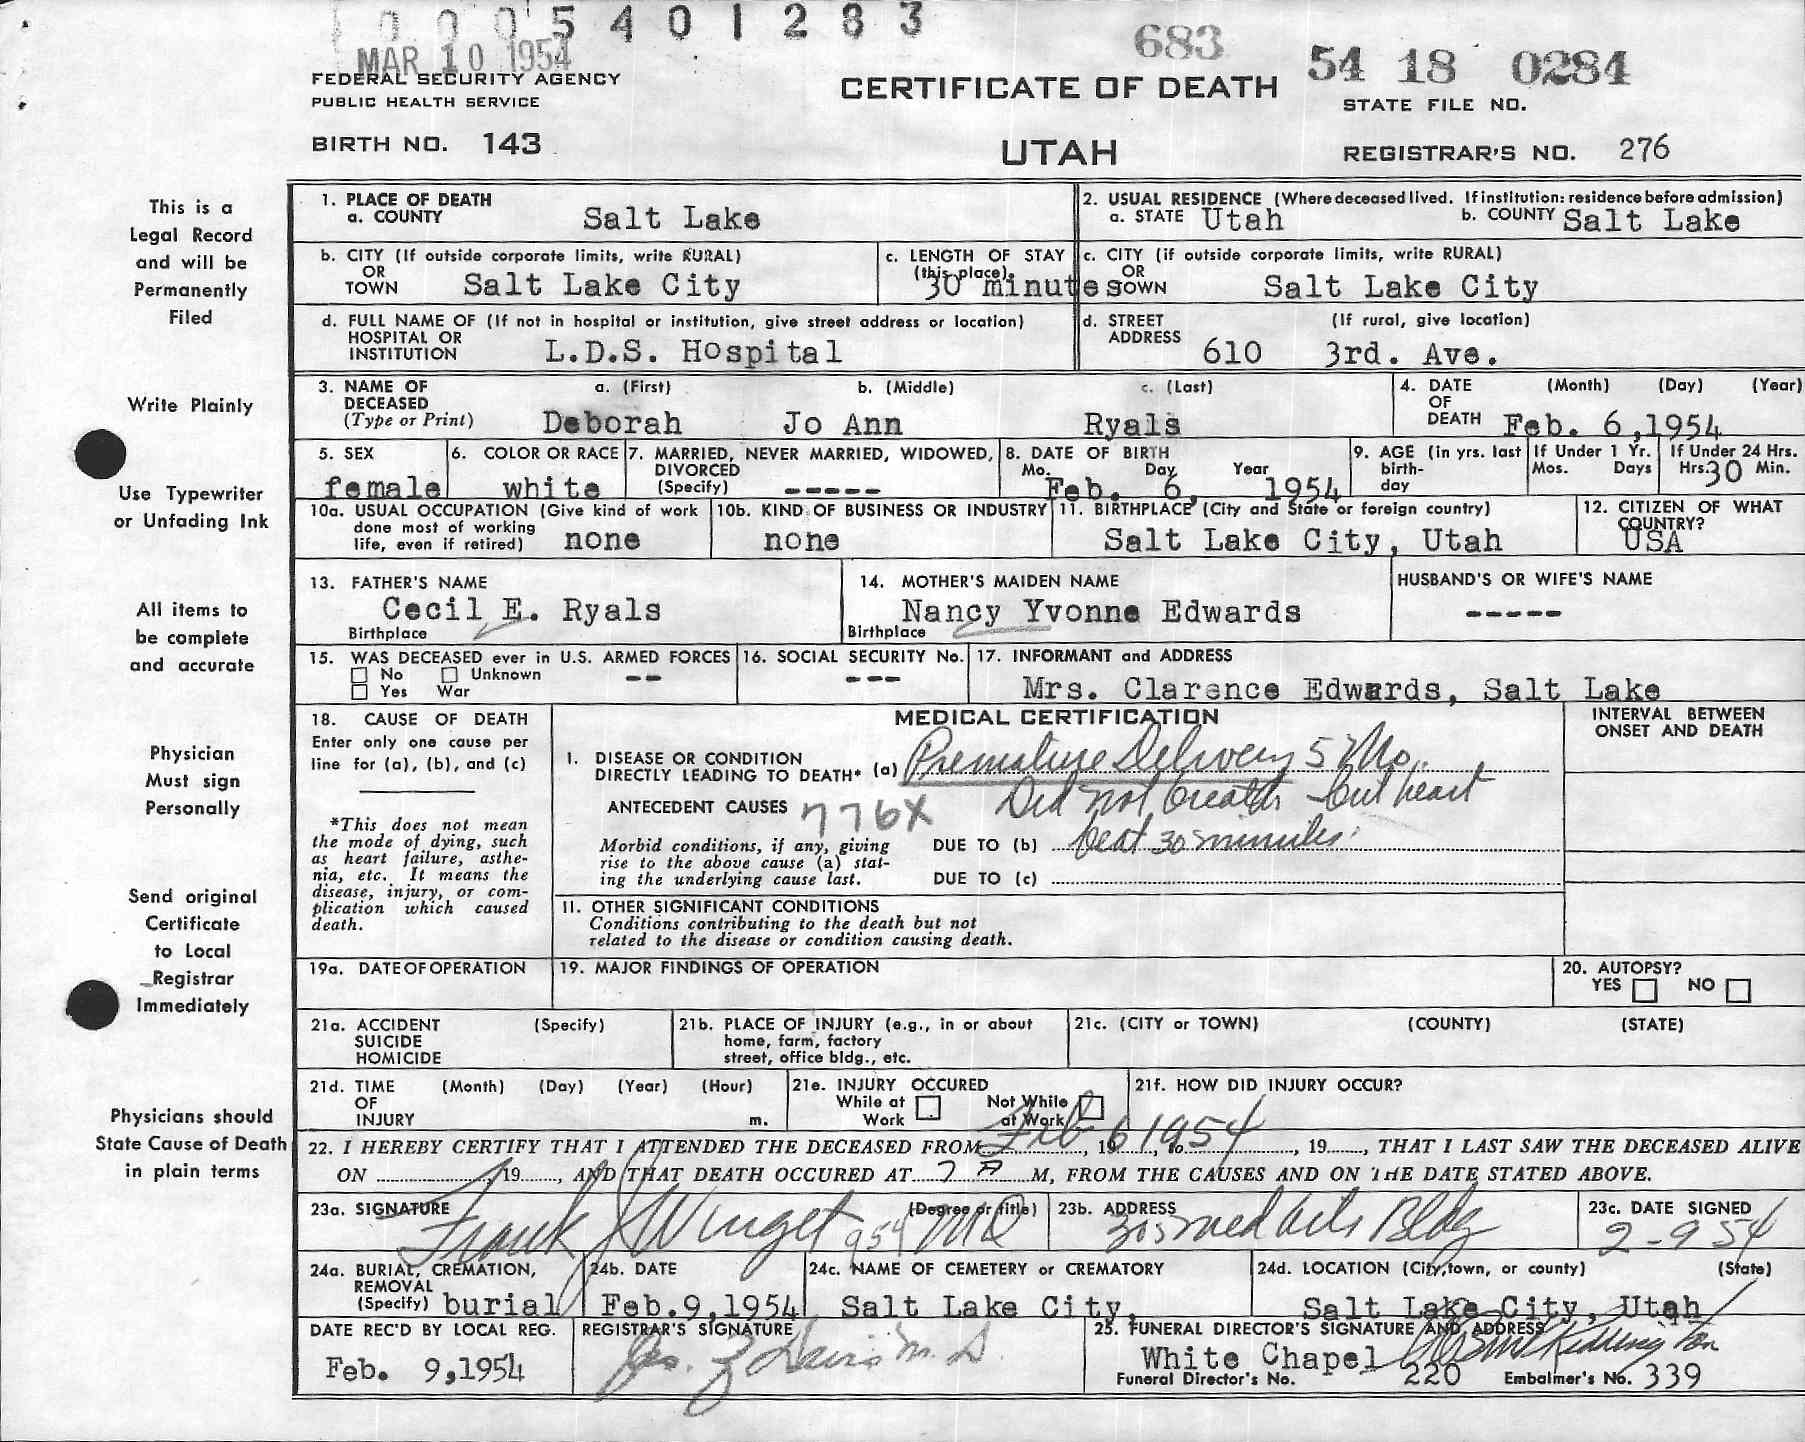 0005401283
MAR 10 1954
683
54 18 0284
FEDERAL SECURITY AGENCY
PUBLIC HEALTH SERVICE
CERTIFICATE OF DEATH
STATE FILE NO.
BIRTH NO. 143
UTAH
REGISTRAR'S NO. 276
This is a
Legal Record
and will be
Permanently
Filed
Write Plainly
Use Typewriter
or Unfading Ink
All items to
be complete
and accurate
Physician
Must sign
Personally
Send original
Certificate
to Local
Registrar
Immediately
Physicians should
State Cause of Death
in plain terms
1. PLACE OF DEATH
a. COUNTY Salt Lake
2. USUAL RESIDENCE (Where deceased lived. If institution: residence before admission)
a. STATE Utah b. COUNTY Salt Lake
b. CITY (If outside corporate limits, write RURAL)
OR
TOWN Salt Lake City
c. LENGTH OF STAY
(this place)
30 minutes
c. CITY (if outside corporate limits, write RURAL)
OR
TOWN Salt Lake City
d. FULL NAME OF (If not in hospital or institution, give street address or location)
HOSPITAL OR
INSTITUTION L.D.S. Hospital
d. STREET (If rural, give location)
ADDRESS 610 3rd. Ave.
3. NAME OF a. (First) b. (Middle) c. (Last)
DECEASED
(Type or Print) Deborah Jo Ann Ryals
4. DATE (Month) (Day) (Year)
OF
DEATH Feb. 6,1954
5. SEX
female
6. COLOR OR RACE
white
7. MARRIED, NEVER MARRIED, WIDOWED,
DIVORCED
(Specify) -----
8. DATE OF BIRTH
Mo. Day Year
Feb. 6, 1954
9. AGE (in yrs. last
birth-
day
If Under 1 Yr.
Mos. Days
If Under 24 Hrs.
Hrs. 30 Min.
10a. USUAL OCCUPATION (Give kind of work
done most of working
life, even if retired) none
10b. KIND OF BUSINESS OR INDUSTRY
none
11. BIRTHPLACE (City and State or foreign country)
Salt Lake City, Utah
12. CITIZEN OF WHAT
COUNTRY?
USA
13. FATHER'S NAME
Cecil E. Ryals
Birthplace
14. MOTHER'S MAIDEN NAME
Nancy Yvonne Edwards
Birthplace
HUSBAND'S OR WIFE'S NAME
-----
15. WAS DECEASED ever in U.S. ARMED FORCES
No Unknown --
Yes War
16. SOCIAL SECURITY No.
---
17. INFORMANT and ADDRESS
Mrs. Clarence Edwards, Salt Lake
18. CAUSE OF DEATH
Enter only one cause per
line for (a), (b), and (c)
*This does not mean
the mode of dying, such
as heart failure, asthe-
nia, etc. It means the
disease, injury, or com-
plication which caused
death.
MEDICAL CERTIFICATION
INTERVAL BETWEEN
ONSET AND DEATH
I. DISEASE OR CONDITION
DIRECTLY LEADING TO DEATH* (a) Premature Delivery 5 Mo.
ANTECEDENT CAUSES 776X Did not breathe but heart
Morbid conditions, if any, giving DUE TO (b) beat 30 minutes.
rise to the above cause (a) stat-
ing the underlying cause last. DUE TO (c)
11. OTHER SIGNIFICANT CONDITIONS
Conditions contributing to the death but not
related to the disease or condition causing death.
19a. DATE OF OPERATION
19. MAJOR FINDINGS OF OPERATION
20. AUTOPSY?
YES NO
21a. ACCIDENT (Specify)
SUICIDE
HOMICIDE
21b. PLACE OF INJURY (e.g., in or about
home, farm, factory
street, office bldg., etc.
21c. (CITY or TOWN) (COUNTY) (STATE)
21d. TIME (Month) (Day) (Year) (Hour)
OF
INJURY m.
21e. INJURY OCCURED
While at Not While
Work at Work
21f. HOW DID INJURY OCCUR?
22. I HEREBY CERTIFY THAT I ATTENDED THE DECEASED FROM Feb 6 1954, 19......, to......, 19......, THAT I LAST SAW THE DECEASED ALIVE
ON ......, 19......, AND THAT DEATH OCCURED AT 7 A M, FROM THE CAUSES AND ON THE DATE STATED ABOVE.
23a. SIGNATURE (Degree or title)
Frank J Winget 954 MD
23b. ADDRESS
305 Med Arts Bldg
23c. DATE SIGNED
2-9 54
24a. BURIAL, CREMATION,
REMOVAL
(Specify) burial
24b. DATE
Feb.9,1954
24c. NAME OF CEMETERY or CREMATORY
Salt Lake City,
24d. LOCATION (City, town, or county) (State)
Salt Lake City, Utah
DATE REC'D BY LOCAL REG.
Feb. 9,1954
REGISTRAR'S SIGNATURE
Jas. Z Davis M.D.
25. FUNERAL DIRECTOR'S SIGNATURE AND ADDRESS
White Chapel
Funeral Director's No. 220 Embalmer's No. 339